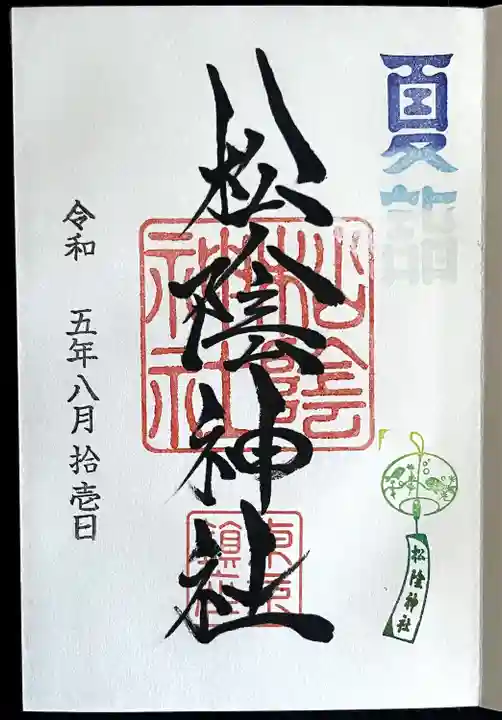 夏詣
松陰神社
松陰
神社
東京
鎮座
松陰神社
令和 五年八月拾壱日